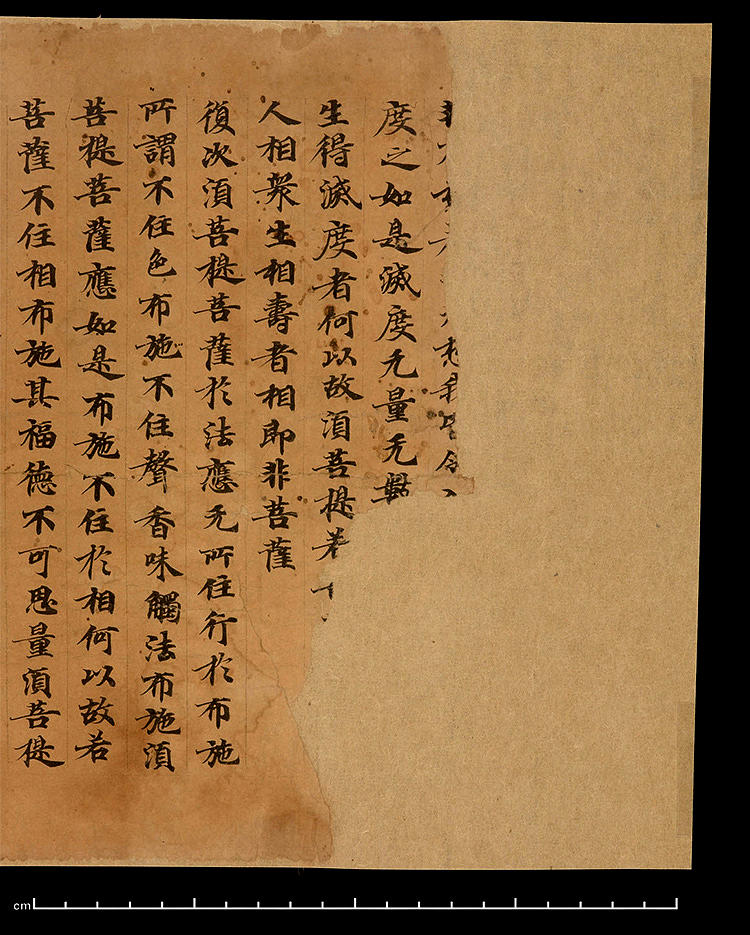 想我皆令
度之如是滅度无量无數
生得滅度者何以故須菩提若
人相衆生相壽者相即非菩薩
復次須菩提菩薩於法應无所住行於布施
所謂不住色布施不住聲香味觸法布施須
菩提菩薩應如是布施不住於相何以故若
菩薩不住相布施其福德不可思量須菩提
cm